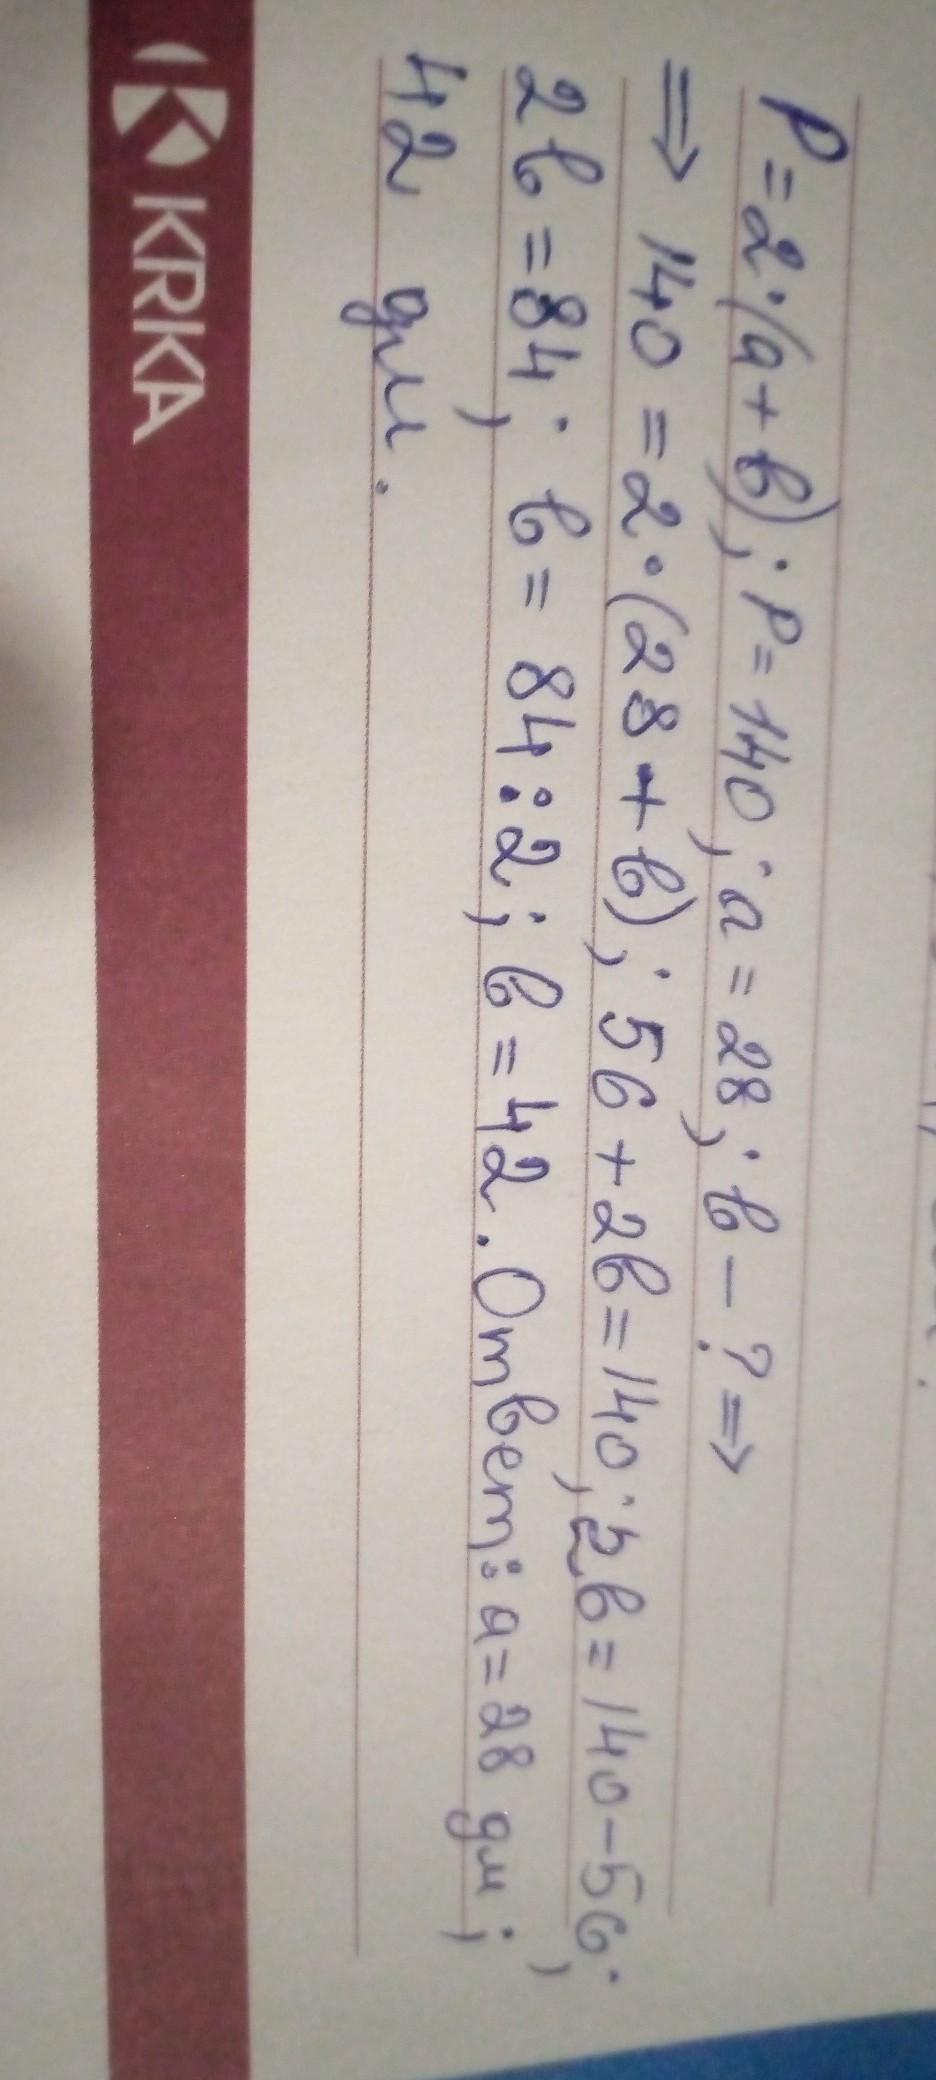 P=2·(a+b); P=140; a=28; b-? ⇒
⇒ 140=2·(28+b); 56+2b=140; 2b=140-56;
2b=84; b=84:2; b=42. Ответ: a=28 дм;
42 дм.
KRKA